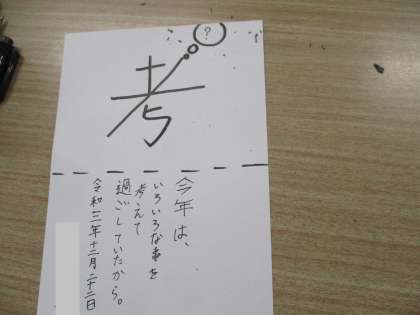 ?
考
今年は、
いろいろな事を
考えて
過ごしていたから。
令和三年十二月二十二日